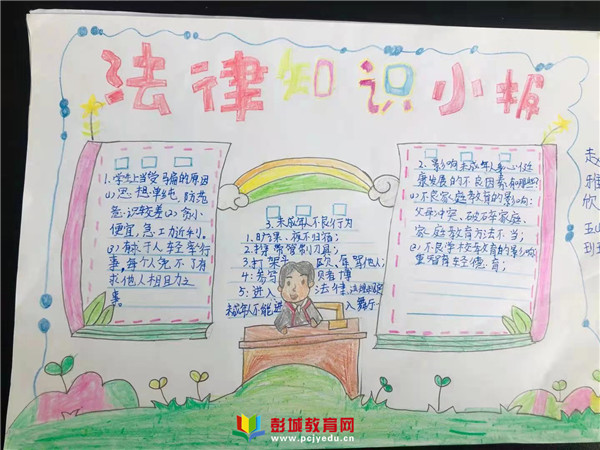 法律知识小报
1.学生上当受骗的原因
(1)思想单纯,防范
意识较差(2)贪小
便宜,急工力近利。
(3)有求于人轻率行
事,每个人免不了有
求他人相且力之
事。
3.未成年人不良行为
1:旷课、夜不归宿;
2:携带管制刀具;
3:打架
辱骂他人;
5:进入法律、法规
未成年人不能进入舞厅
2.影响未成年人身心健
康发展的不良因素有哪些?
(1)不良家庭教育的影响:
父母冲突,破碎家庭,
家庭教育方法不当;
(2)不良学校教育的影响
重智育轻德育;
走
雅
欣
五
班
彭城教育网
www.pcjyedu.cn